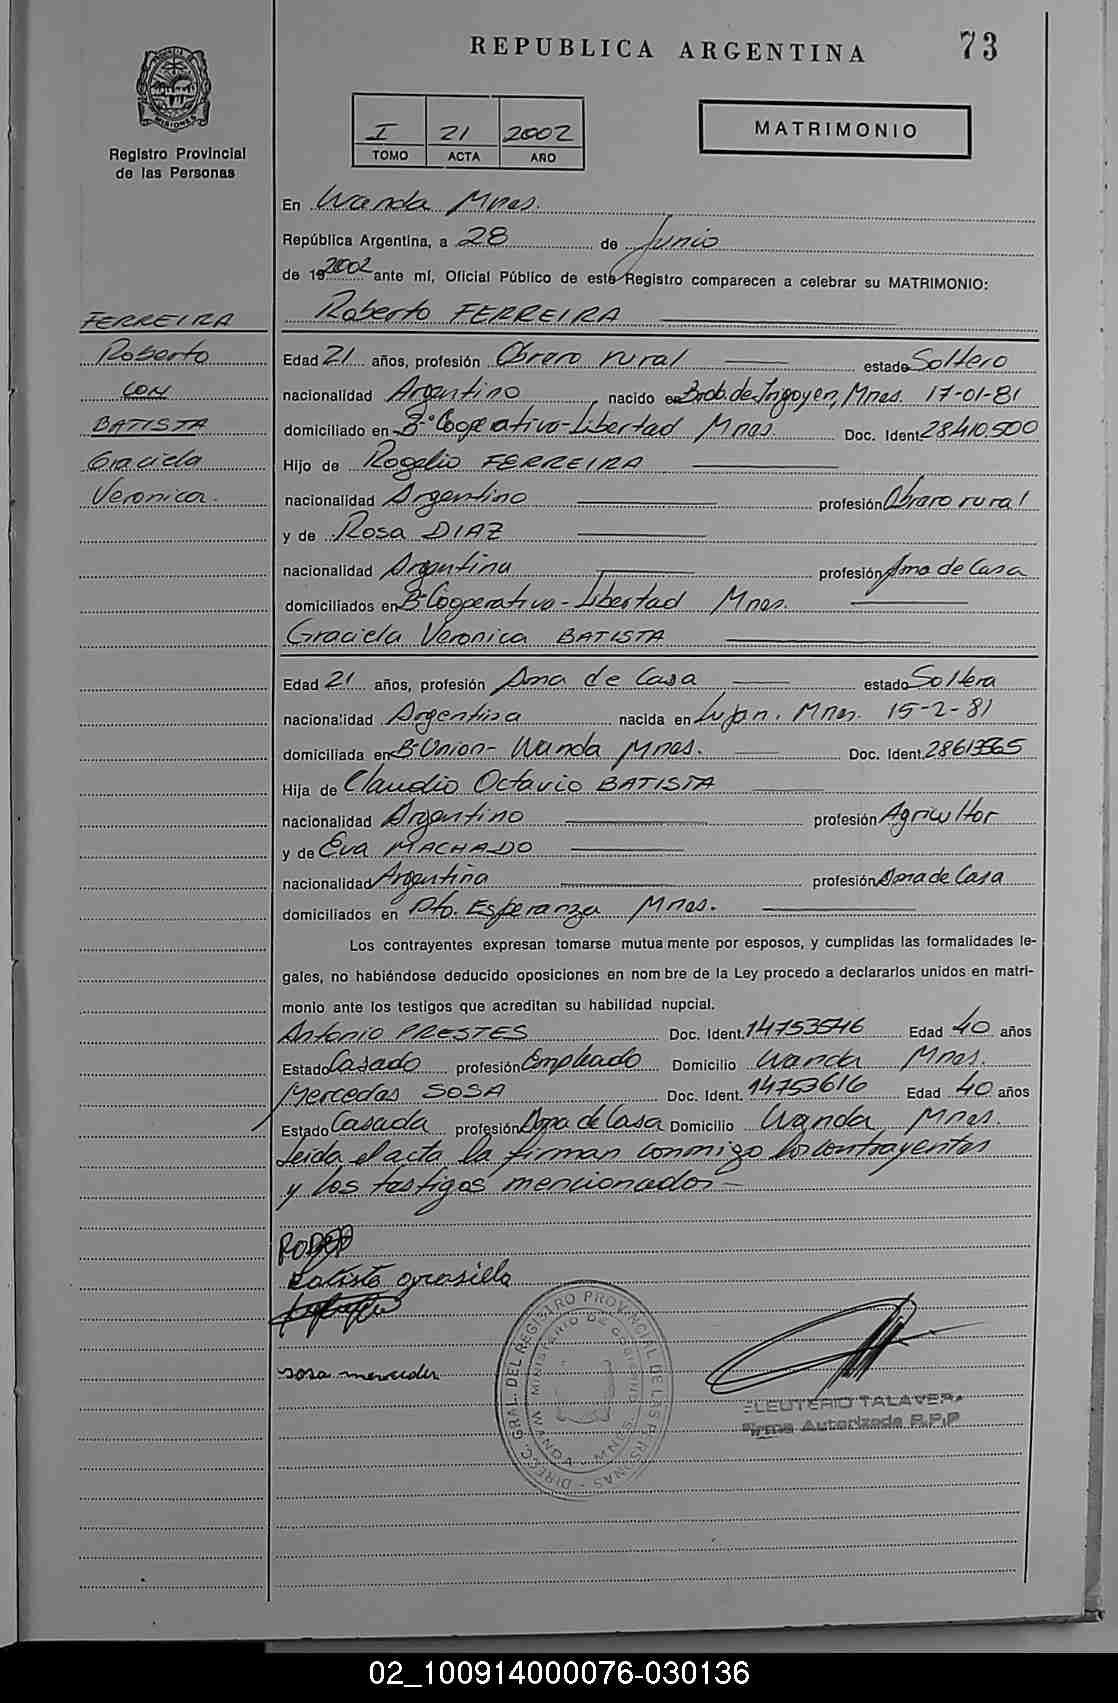 REPUBLICA ARGENTINA 73
PROVINCIA DE MISIONES
Registro Provincial
de las Personas
I 21 2002
TOMO ACTA AÑO
MATRIMONIO
FERREIRA
Roberto
CON
BATISTA
Graciela
Veronica.
En Wanda Mnes.
República Argentina, a 28 de Junio
de 19 2002 ante mí, Oficial Público de este Registro comparecen a celebrar su MATRIMONIO:
Roberto FERREIRA
Edad 21 años, profesión Obrero rural estado Soltero
nacionalidad Argentino nacido en Brob. de Irigoyen, Mnes. 17-01-81
domiciliado en Bº Cooperativa-Libertad Mnes. Doc. Ident. 28.410.500
Hijo de Rogelio FERREIRA
nacionalidad Argentino profesión Obrero rural
y de Rosa DIAZ
nacionalidad Argentina profesión Ama de Casa
domiciliados en Bº Cooperativa-Libertad Mnes.
Graciela Veronica BATISTA
Edad 21 años, profesión Ama de Casa estado Soltera
nacionalidad Argentina nacida en Lujan. Mnes. 15-2-81
domiciliada en Bº Union- Wanda Mnes. Doc. Ident.
Hija de Claudio Octavio BATISTA
nacionalidad Argentino profesión Agricultor
y de Eva MACHADO
nacionalidad Argentina profesión Ama de Casa
domiciliados en Pto. Esperanza Mnes.
Los contrayentes expresan tomarse mutuamente por esposos, y cumplidas las formalidades le-
gales, no habiéndose deducido oposiciones en nombre de la Ley procedo a declararlos unidos en matri-
monio ante los testigos que acreditan su habilidad nupcial.
Antonio PRESTES Doc. Ident. 14753546 Edad 40 años
Estado Casado profesión Empleado Domicilio Wanda Mnes.
Mercedes SOSA Doc. Ident. 14753616 Edad 40 años
Estado Casada profesión Ama de Casa Domicilio Wanda Mnes.
Leida el acta la firman conmigo los contrayentes
y los testigos mencionados
Batista grasiela
sosa mercedes
DIREC. GRAL. DEL REGISTRO PROVINCIAL DE LAS PERSONAS
MINISTERIO DE GOBIERNO
WANDA - MNES.
ELEUTERIO TALAVERA
Firma Autorizada R.P.P
02_100914000076-030136